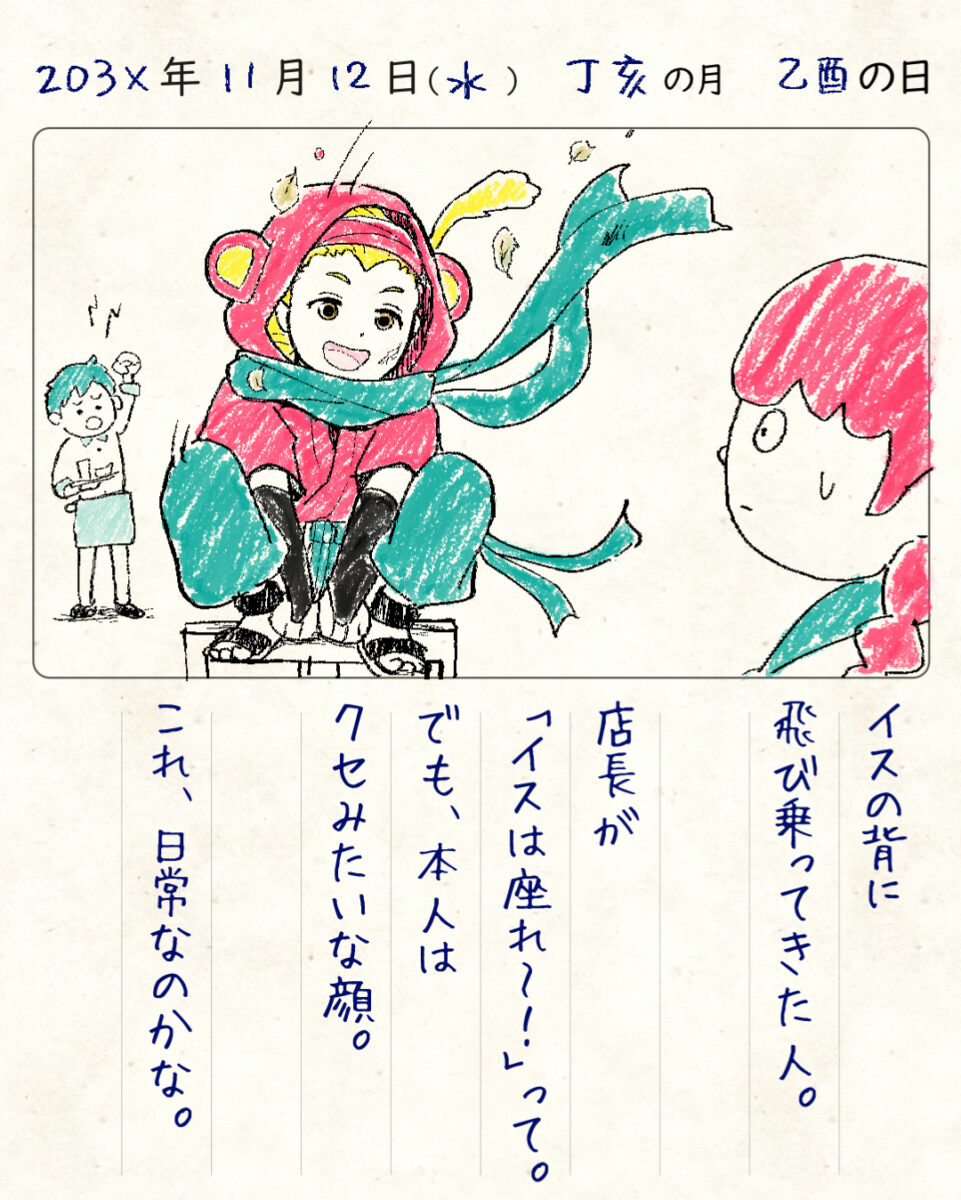 203X年11月12日(水) 丁亥の月 乙酉の日
イスの背に
飛び乗ってきた人。
店長が
「イスは座れ〜!」って。
でも、本人は
クセみたいな顔。
これ、日常なのかな。